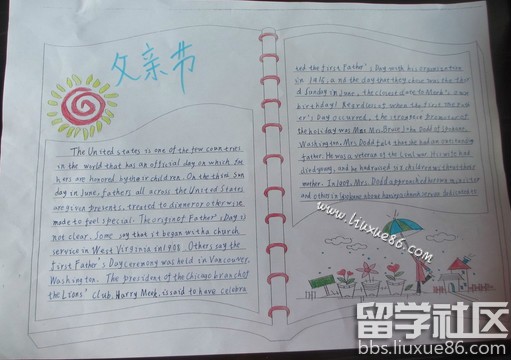 父亲节
The United States is one of the few countries
in the world that has an official day on which fat
hers are honored by their children. On the third Sun
day in June, fathers all across the United States
are given presents, treated to dinner or otherwise
made to feel special. The origin of Father's Day is
not clear. Some say that it began with a church
service in West Virginia in 1908. Others say the
first Father's Day ceremony was held in Vancouver,
Washington. The president of the Chicago branch of
the Lions' club, Harry Meek, is said to have celebra
ted the first Father's Day with his organization
in 1915, and the day that they chose was the third
Sunday in June, the closest date to Meek's own
birthday! Regardless of when the first
Day occurred, the strongest promoter of
the holiday was Mrs. of Spokane,
Washington. Mrs. Dodd felt that she had an outstanding
father. He was a veteran of the Civil War. His wife had
died young, and he had raised six children without their
mother. In 1909, Mrs. Dodd approached her own minister
and others in Spokane about having a church service dedicated to
www.liuxue86.com
留学社区
bbs.liuxue86.com